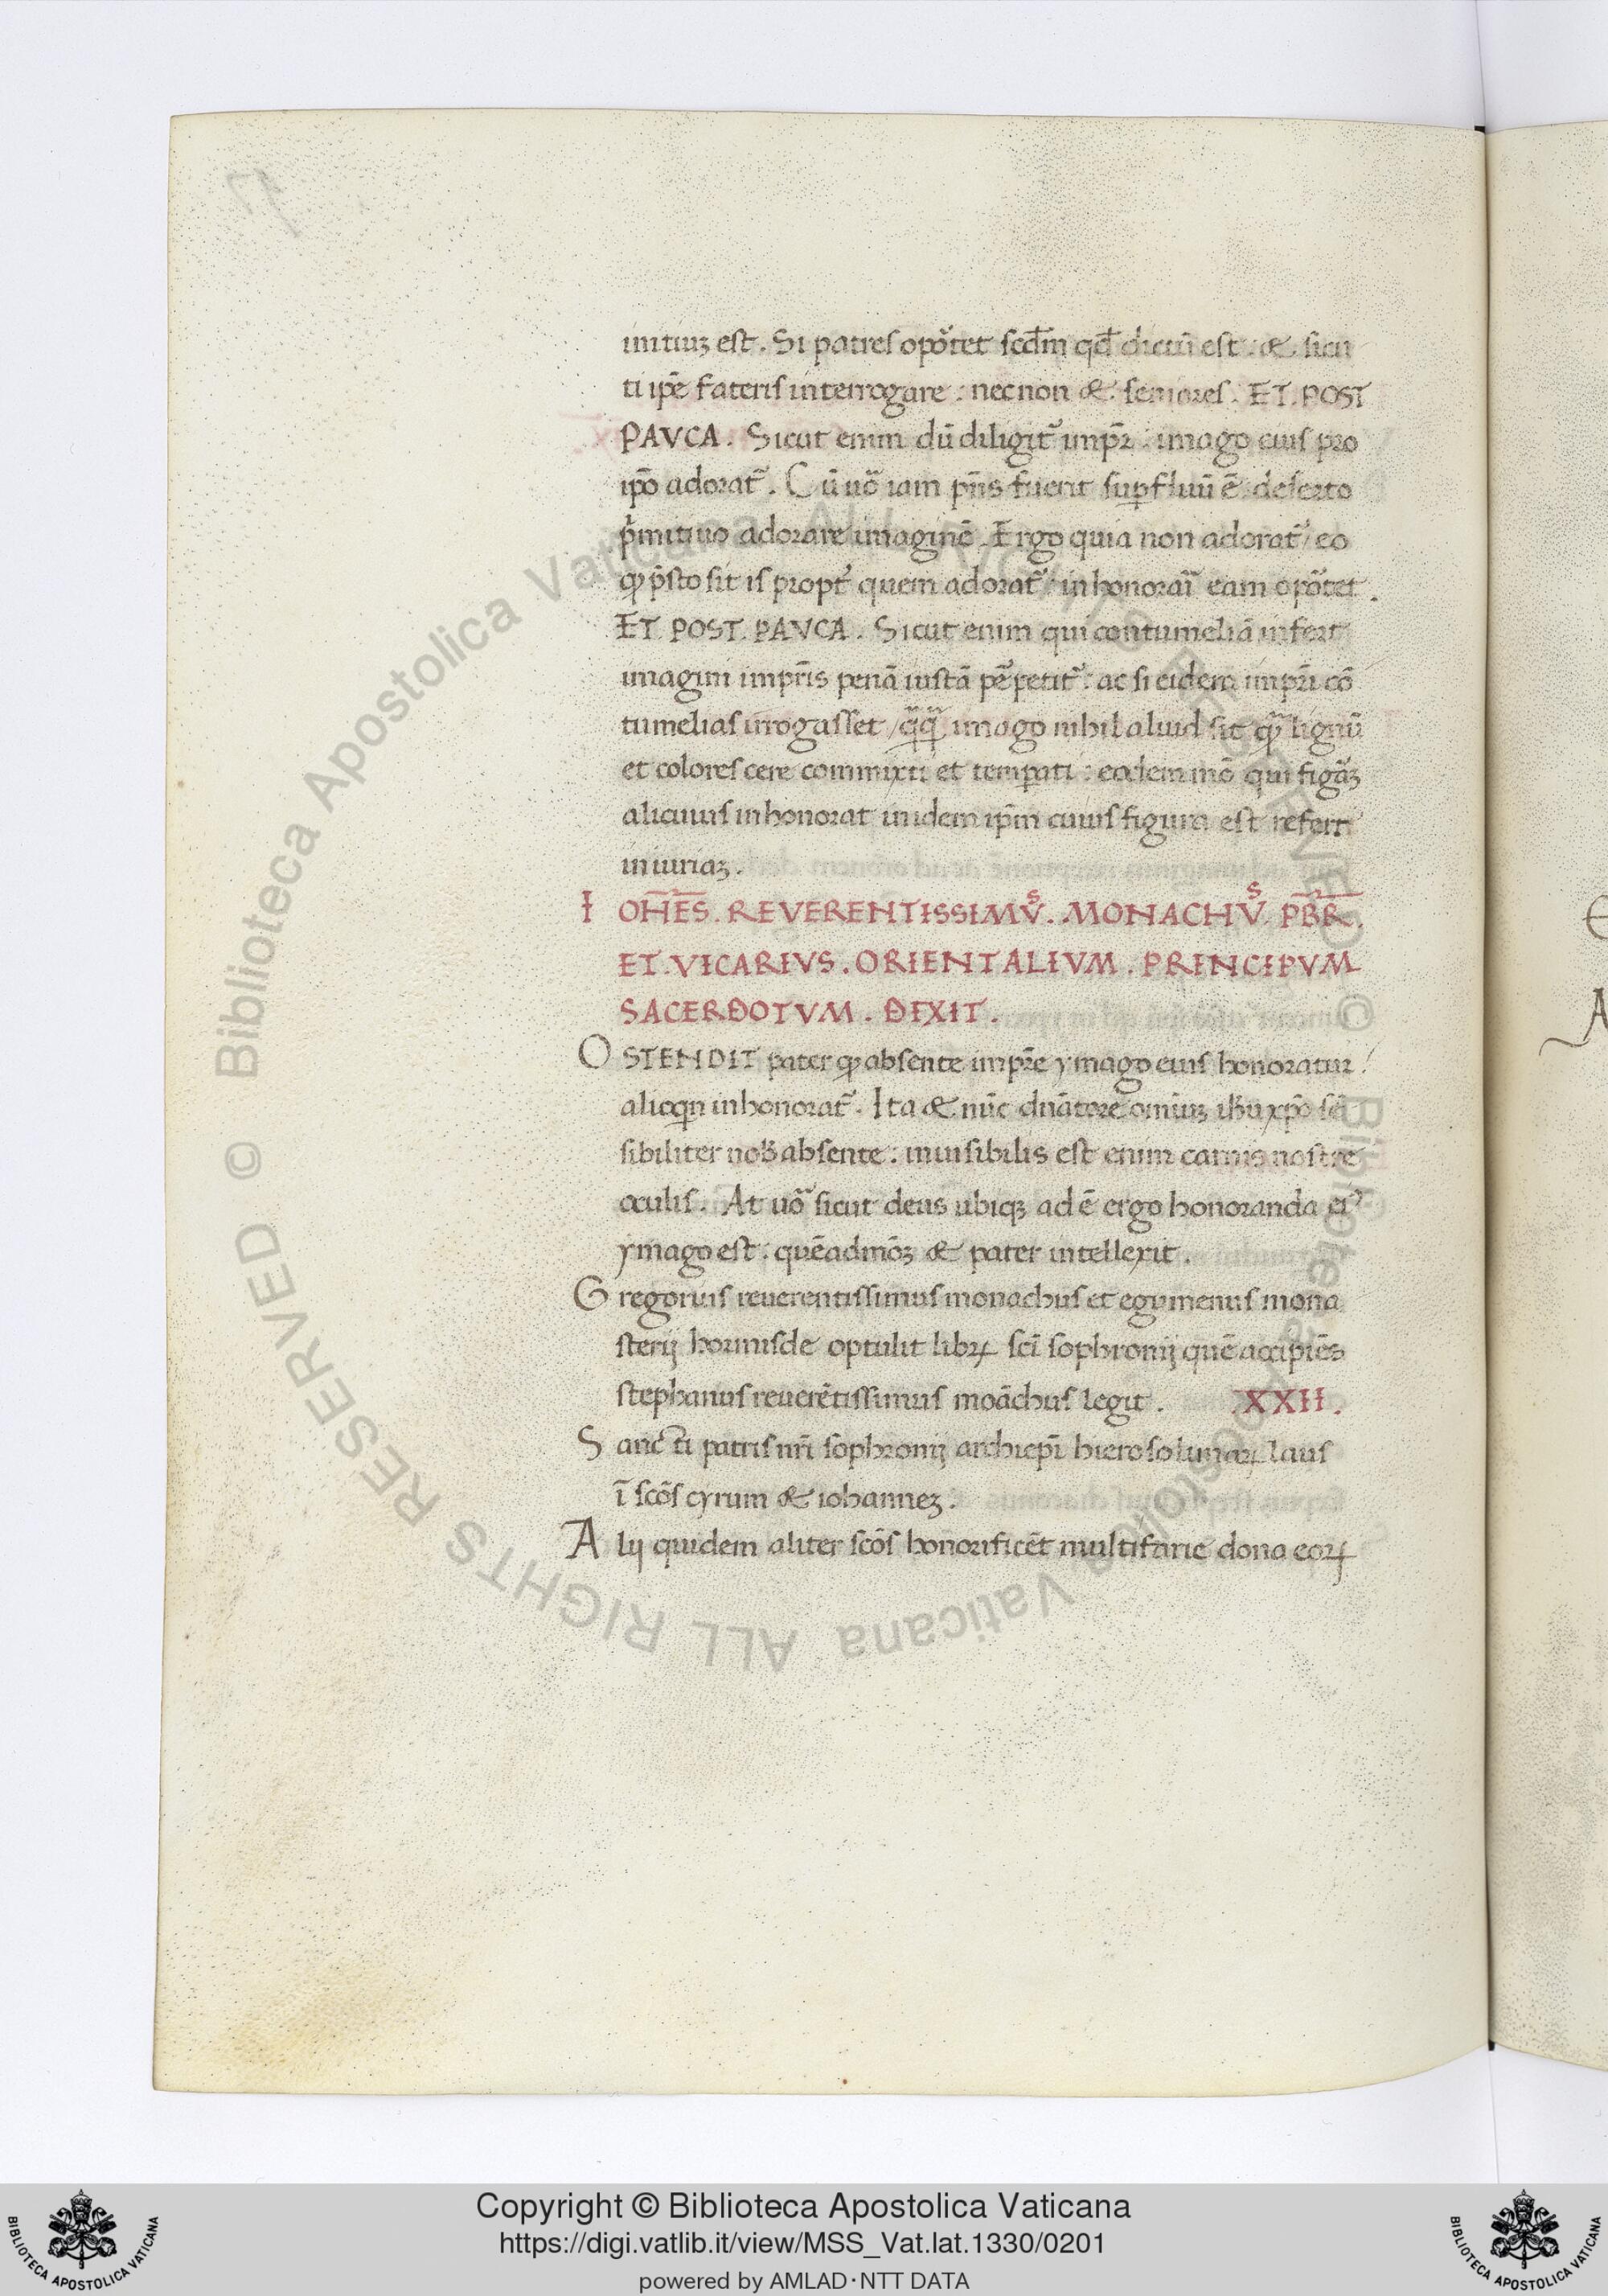 initiuꝫ est. Si patres opõtet scđm qđ dictũ est: & sicu
ti ip̃e fateris interrogare: necnon & seniores. ET. POST
PAVCA. Sicut enim dũ diligit᷑ imp̃r: imago eius pro
ip̃o adorat᷑. Cũ uõ iam p̃ns fuerit suꝑfluũ ẽ deserto
p̃mitiuo adorare imaginẽ. Ergo quia non adorat᷑/ eo
ꝙ p̃sto sit is propt̃ quem adorat᷑: inhonorari eam opõtet.
ET. POST. PAVCA. Sicut enim qui contumeliã infert
imagini imp̃ris penã iustã perpetit᷑: ac si eidem imp̃ri cõ
tumelias irrogasset/ q̃q̃ imago nihil aliud sit q̃ lignũ
et colores cere commixti et temꝑati: eodem mõ qui figãꝫ
alicuius inhonorat in idem ip̃m cuius figura est refert
iniuriaꝫ.
IOH̃ES. REVERENTISSIMVˢ. MONACHVˢ. P̃BR̃.
ET. VICARIVS. ORIENTALIVM. PRINCIPVM
SACERDOTVM. DIXIT.
OSTENDIT pater ꝙ absente imp̃re ymago eius honoratur:
alioqn inhonorat᷑. Ita & nũc dñatore omniuꝫ ihũ xp̃o sẽ
sibiliter nob̃ absente: inuisibilis est enim carnis nostre
oculis. At uõ sicut deus ubiqꝫ adẽ ergo honoranda eiꝰ
ymago est: quẽadmõꝫ & pater intellexit.
Gregorius reuerentissimus monachus et egumenus mona
sterij hormisde optulit libꝝ sc̃i sophronij quẽ accipiẽs
stephanus reuerẽtissimus moãchus legit. XXII.
Sancti patris nr̃i sophronij archiep̃i hierosolimaꝝ laus
ĩ sc̃os cyrum & iohanneꝫ.
Alij quidem aliter sc̃os honorificẽt multifarie dona eoꝝ
© Biblioteca Apostolica Vaticana ALL RIGHTS RESERVED © Biblioteca Apostolica Vaticana ALL RIGHTS RESERVED
Copyright © Biblioteca Apostolica Vaticana
https://digi.vatlib.it/view/MSS_Vat.lat.1330/0201
powered by AMLAD·NTT DATA
BIBLIOTECA APOSTOLICA VATICANA
BIBLIOTECA APOSTOLICA VATICANA